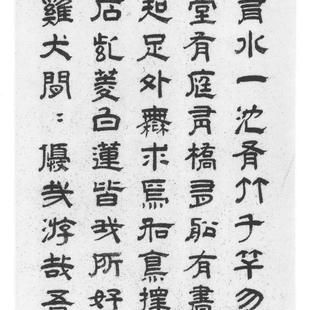 有水一池有竹千竿勿
堂有庭有橋有船有書
知足外無求焉如鳥擇
石紫菱白蓮皆我所好
雞犬閒〻優哉游哉吾